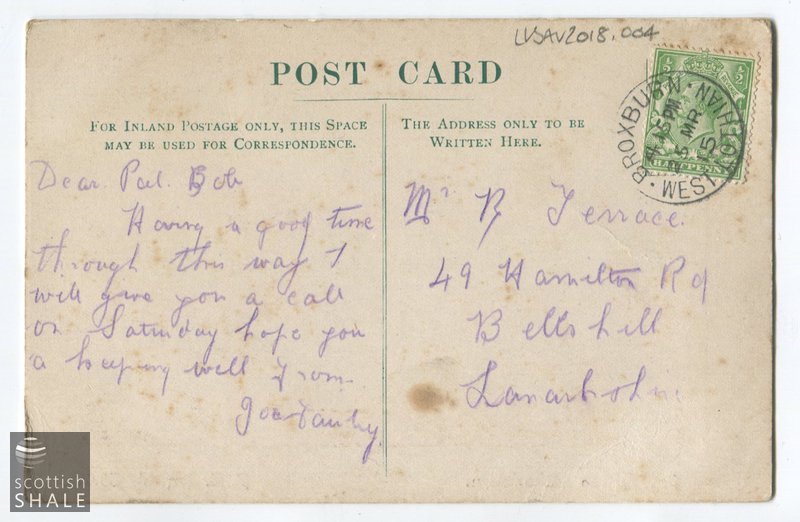 LVSAV2018.004
POST CARD
FOR INLAND POSTAGE ONLY, THIS SPACE
MAY BE USED FOR CORRESPONDENCE.
THE ADDRESS ONLY TO BE
WRITTEN HERE.
BROXBURN · WEST LOTHIAN
PM
MR
15
HALFPENNY
Dear Pal. Bob
Having a good time
through this way I
will give you a call
on Saturday hope you
a keeping well from
Joe
Mr R Terrace.
49 Hamilton Rd
Bellshill
Lanarkshire
scottish
SHALE